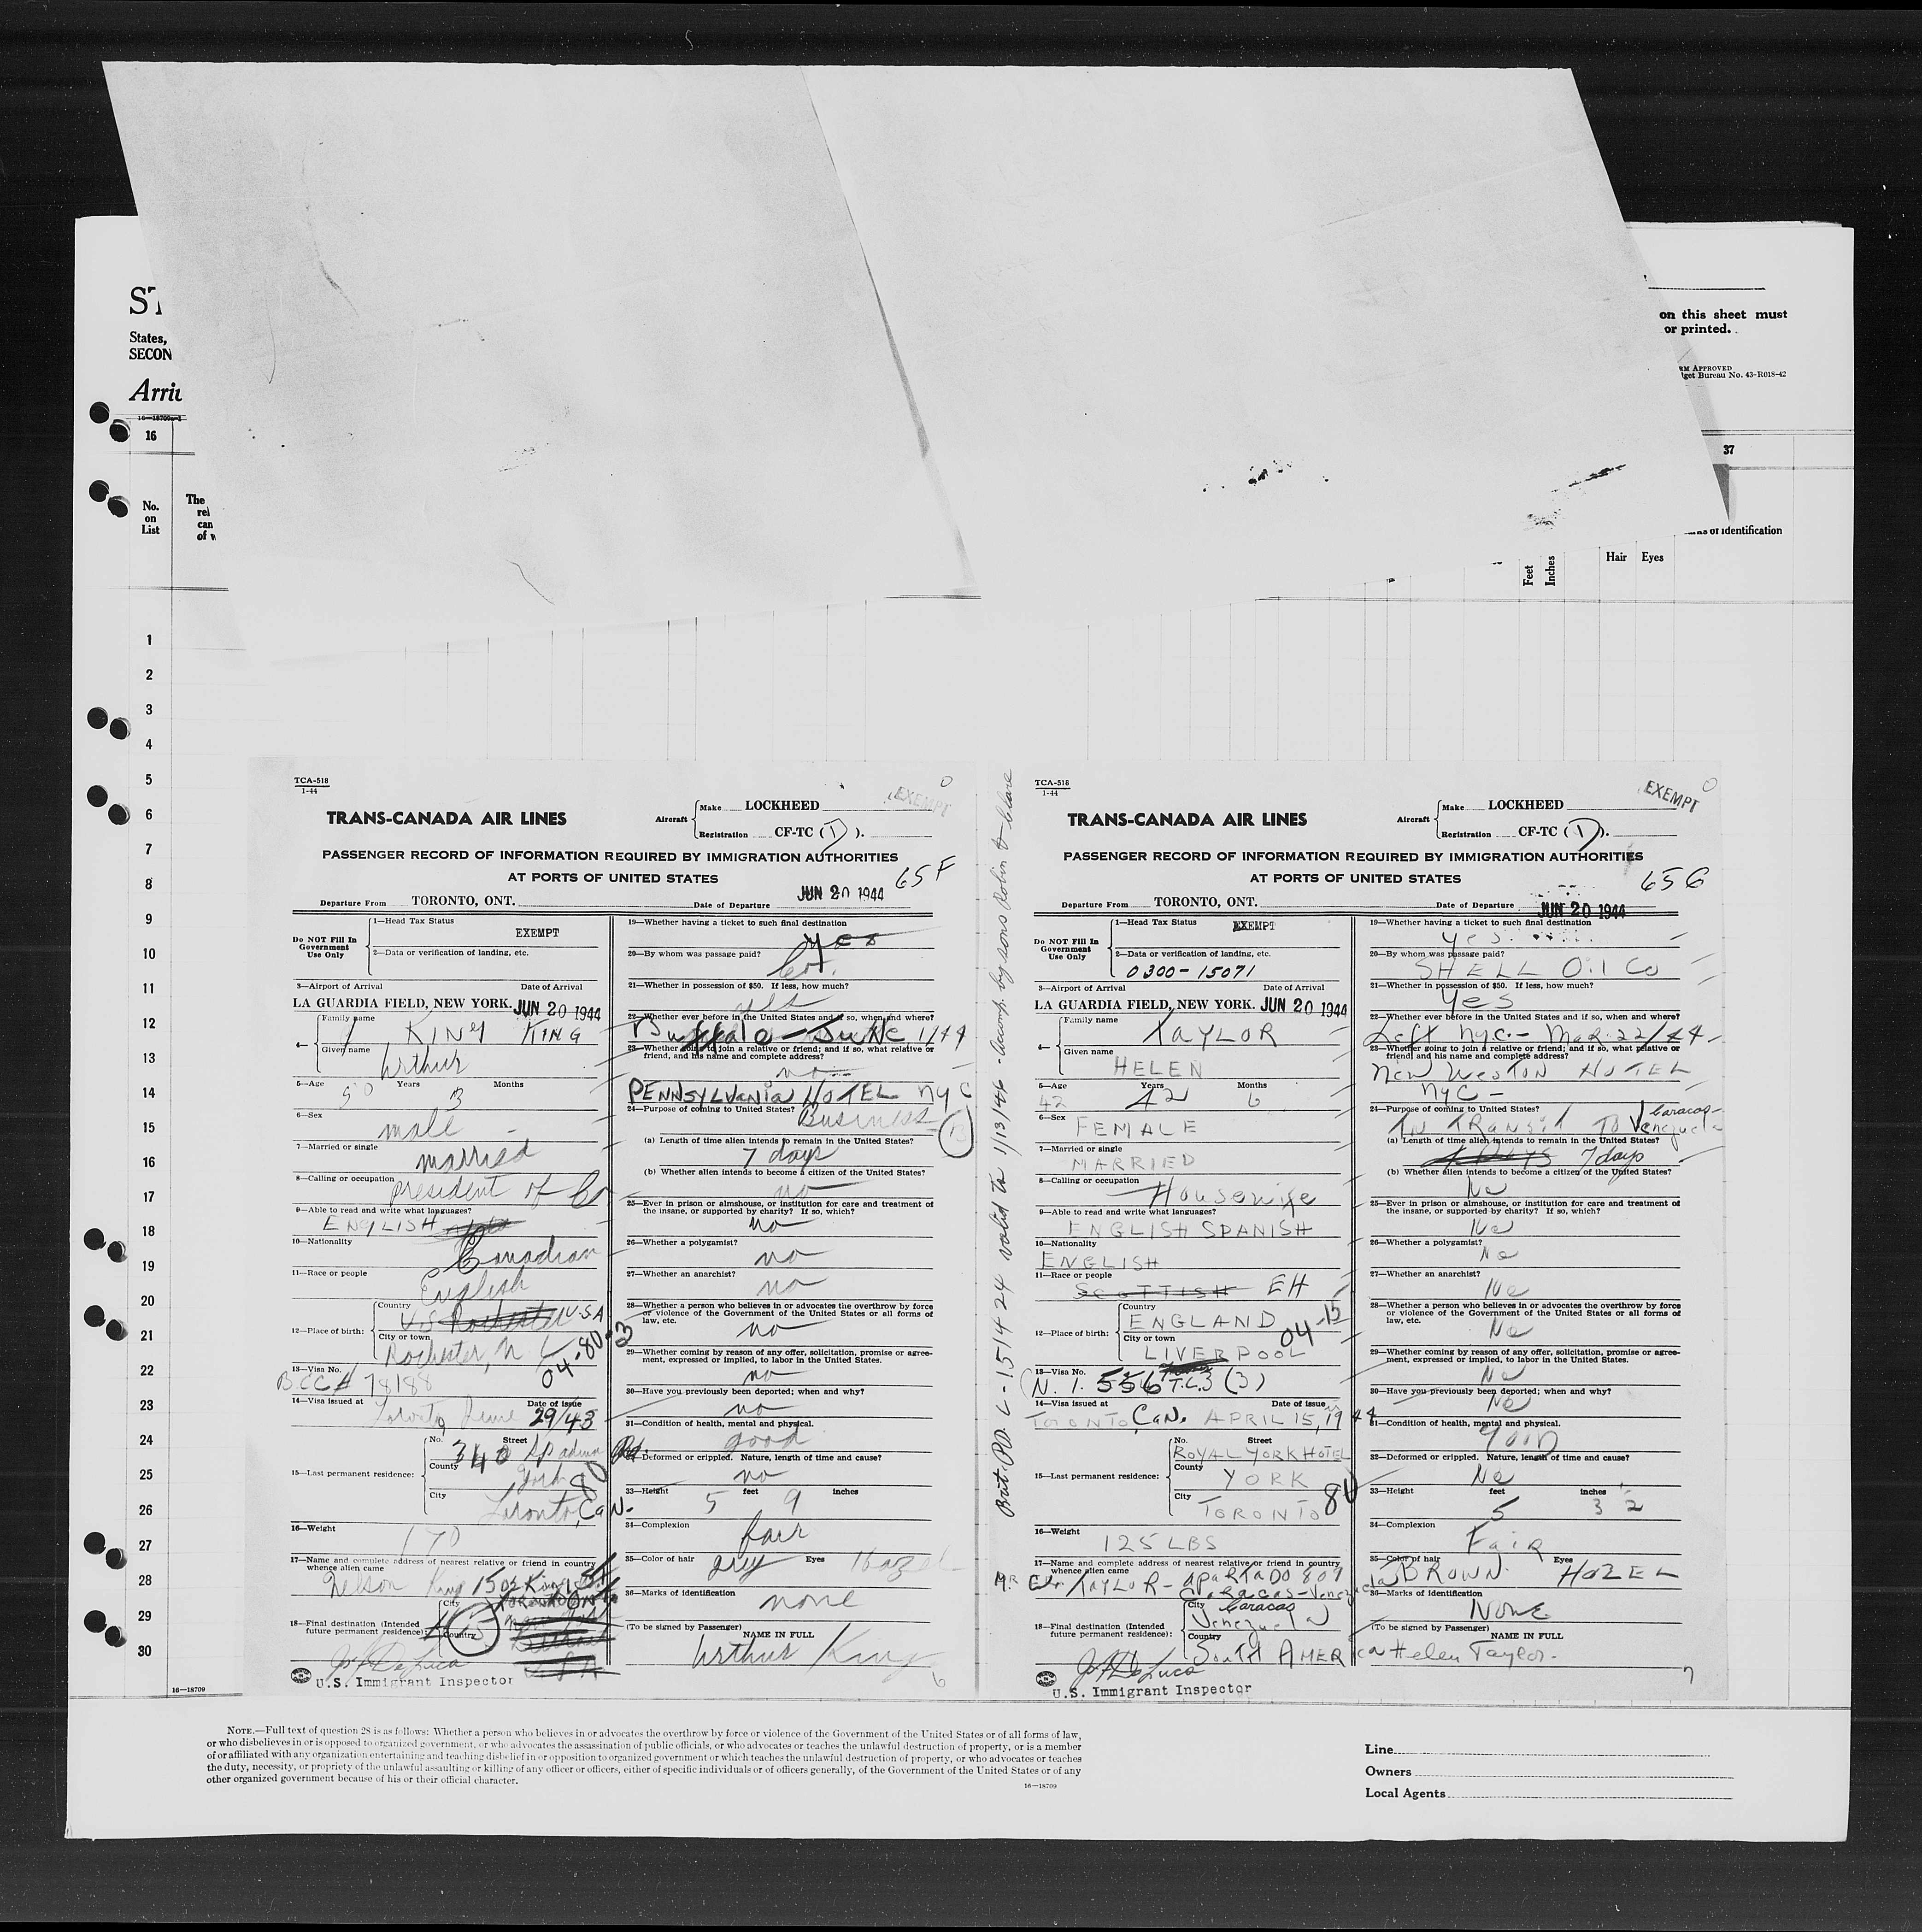 ST
States,
SECON
Arriv
on this sheet must
or printed.
RM APPROVED
dget Bureau No. 43-R018-42
16—18709a-1
16
37
No.
on
List
The
rel
can
of w
of identification
Feet
Inches
Hair Eyes
1
2
3
4
5
6
7
8
9
10
11
12
13
14
15
16
17
18
19
20
21
22
23
24
25
26
27
28
29
30
TCA-518
1-44
EXEMPT
TRANS-CANADA AIR LINES
Aircraft
Make LOCKHEED
Registration CF-TC (I).
PASSENGER RECORD OF INFORMATION REQUIRED BY IMMIGRATION AUTHORITIES
AT PORTS OF UNITED STATES
65F
Departure From TORONTO, ONT. Date of Departure JUN 20 1944
Do NOT Fill In
Government
Use Only
1—Head Tax Status
EXEMPT
2—Data or verification of landing, etc.
3—Airport of Arrival Date of Arrival
LA GUARDIA FIELD, NEW YORK. JUN 20 1944
4—
Family name
KING KING
Given name
Arthur
5—Age Years Months
50 3
6—Sex
male
7—Married or single
married
8—Calling or occupation
president of Co
9—Able to read and write what languages?
ENGLISH
10—Nationality
Canadian
11—Race or people
English
12—Place of birth:
Country
US Rochester U.S.A
City or town
Rochester, N.Y.
04-80-3
13—Visa No.
BCC# 78188
14—Visa issued at Date of issue
Toronto, June 29/43
15—Last permanent residence:
No. Street
340 Spadina Rd.
County
York
City
Toronto, CAN.
80
16—Weight
170
17—Name and complete address of nearest relative or friend in country
whence alien came
Nelson King 1502 King St
TORONTO ONT
18—Final destination (Intended
future permanent residence):
City
Country
U.S. Immigrant Inspector
19—Whether having a ticket to such final destination
yes
20—By whom was passage paid?
Co.
21—Whether in possession of $50. If less, how much?
yes
22—Whether ever before in the United States and if so, when and where?
Buffalo — June 1/44
23—Whether going to join a relative or friend; and if so, what relative or
friend, and his name and complete address?
no
PENNSYLVANIA HOTEL NYC
24—Purpose of coming to United States? Business
(a) Length of time alien intends to remain in the United States?
7 days
(b) Whether alien intends to become a citizen of the United States?
no
25—Ever in prison or almshouse, or institution for care and treatment of
the insane, or supported by charity? If so, which?
no
26—Whether a polygamist?
no
27—Whether an anarchist?
no
28—Whether a person who believes in or advocates the overthrow by force
or violence of the Government of the United States or all forms of
law, etc.
no
29—Whether coming by reason of any offer, solicitation, promise or agree-
ment, expressed or implied, to labor in the United States.
no
30—Have you previously been deported; when and why?
no
31—Condition of health, mental and physical.
good
32—Deformed or crippled. Nature, length of time and cause?
no
33—Height feet inches
5 9
34—Complexion
fair
35—Color of hair grey Eyes Hazel
36—Marks of identification
none
(To be signed by Passenger) NAME IN FULL
Arthur King
6
Brit. P.P. L-151424 valid to 1/13/46 - Accomp. by sons Robin & Clare
TCA-518
1-44
EXEMPT
TRANS-CANADA AIR LINES
Aircraft
Make LOCKHEED
Registration CF-TC (I).
PASSENGER RECORD OF INFORMATION REQUIRED BY IMMIGRATION AUTHORITIES
AT PORTS OF UNITED STATES
65G
Departure From TORONTO, ONT. Date of Departure JUN 20 1944
Do NOT Fill In
Government
Use Only
1—Head Tax Status
EXEMPT
2—Data or verification of landing, etc.
0300-15071
3—Airport of Arrival Date of Arrival
LA GUARDIA FIELD, NEW YORK. JUN 20 1944
4—
Family name
TAYLOR
Given name
HELEN
5—Age Years Months
42 42 6
6—Sex
FEMALE
7—Married or single
MARRIED
8—Calling or occupation
Housewife
9—Able to read and write what languages?
ENGLISH SPANISH
10—Nationality
ENGLISH
11—Race or people
SCOTTISH EH
12—Place of birth:
Country
ENGLAND
City or town
LIVERPOOL
04-15
13—Visa No.
(N.I. 556 T.C.3 (3)
14—Visa issued at Date of issue
TORONTO, CAN. APRIL 15, 1944
15—Last permanent residence:
No. Street
ROYAL YORK HOTEL
County
YORK
City
TORONTO 80
16—Weight
125 LBS
17—Name and complete address of nearest relative or friend in country
whence alien came
MR TAYLOR - APARTADO 809
CARACAS - Venezuela
18—Final destination (Intended
future permanent residence):
City Caracas
Venezuela
Country
SOUTH AMERICA
U.S. Immigrant Inspector
19—Whether having a ticket to such final destination
yes
20—By whom was passage paid?
SHELL Oil Co
21—Whether in possession of $50. If less, how much?
Yes
22—Whether ever before in the United States and if so, when and where?
Left NYC - Mar. 22/44
23—Whether going to join a relative or friend; and if so, what relative or
friend, and his name and complete address?
NEW WESTON HOTEL
NYC -
24—Purpose of coming to United States?
IN TRANSIT TO Caracas - Venezuela
(a) Length of time alien intends to remain in the United States?
4 DAYS 7 days
(b) Whether alien intends to become a citizen of the United States?
No
25—Ever in prison or almshouse, or institution for care and treatment of
the insane, or supported by charity? If so, which?
No
26—Whether a polygamist?
No
27—Whether an anarchist?
No
28—Whether a person who believes in or advocates the overthrow by force
or violence of the Government of the United States or all forms of
law, etc.
No
29—Whether coming by reason of any offer, solicitation, promise or agree-
ment, expressed or implied, to labor in the United States.
No
30—Have you previously been deported; when and why?
No
31—Condition of health, mental and physical.
Good
32—Deformed or crippled. Nature, length of time and cause?
No
33—Height feet inches
5 3 2
34—Complexion
Fair
35—Color of hair Eyes
BROWN. HAZEL
36—Marks of identification
None
(To be signed by Passenger) NAME IN FULL
Helen Taylor.
7
16—18709
NOTE.—Full text of question 28 is as follows: Whether a person who believes in or advocates the overthrow by force or violence of the Government of the United States or of all forms of law,
or who disbelieves in or is opposed to organized government, or who advocates the assassination of public officials, or who advocates or teaches the unlawful destruction of property, or is a member
of or affiliated with any organization entertaining and teaching disbelief in or opposition to organized government or which teaches the unlawful destruction of property, or who advocates or teaches
the duty, necessity, or propriety of the unlawful assaulting or killing of any officer or officers, either of specific individuals or of officers generally, of the Government of the United States or of any
other organized government because of his or their official character.
16—18709
Line
Owners
Local Agents